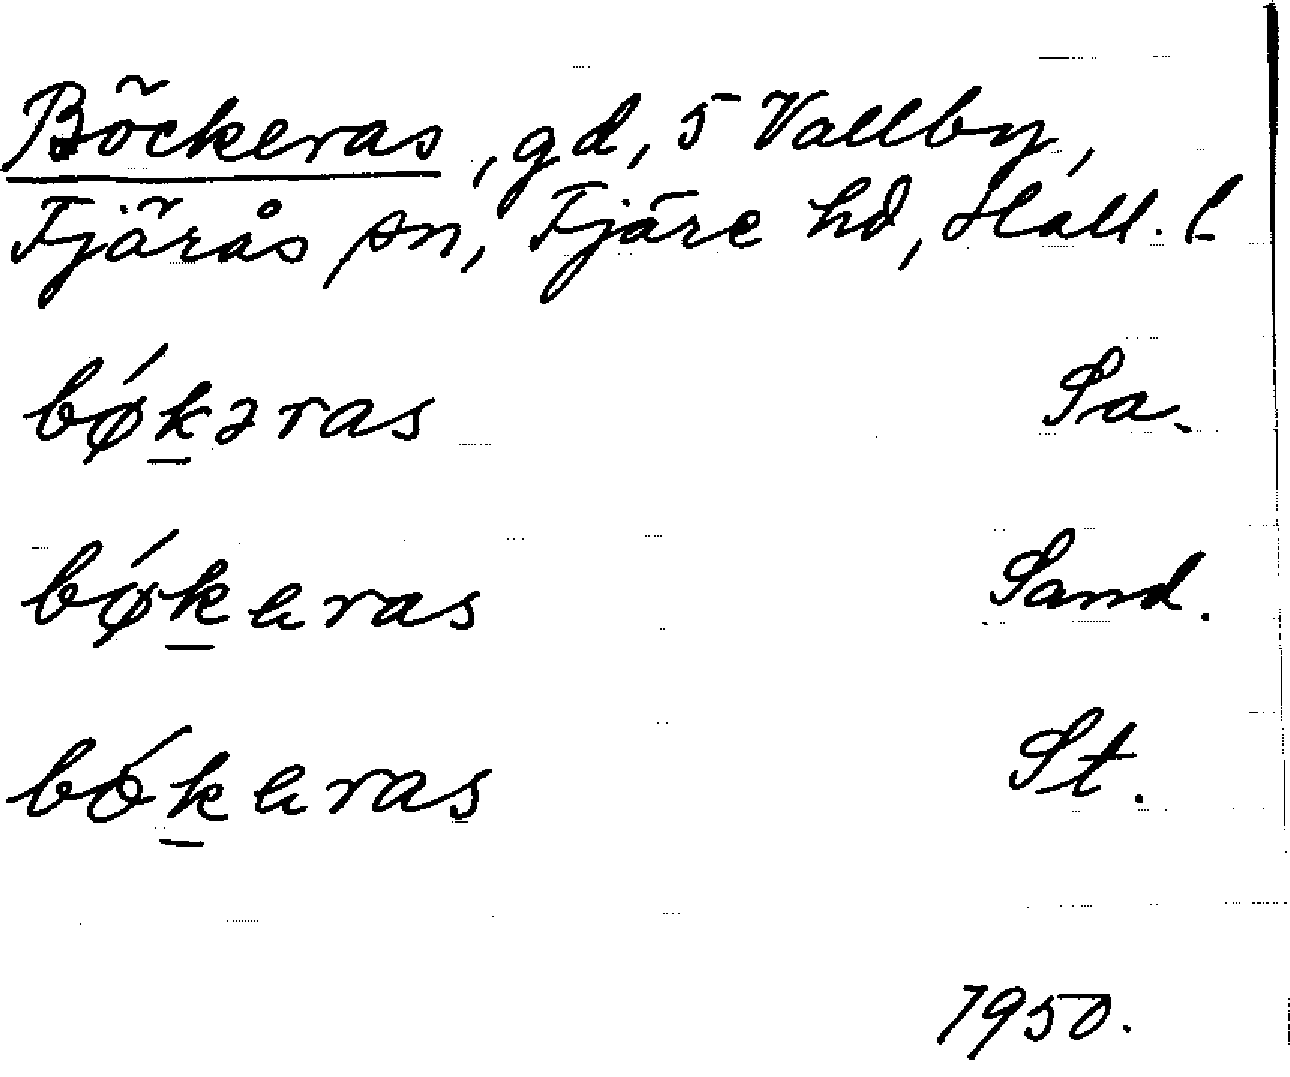 Böckeras, gd, 5 Vallby,
Fjärås sn, Fjäre hd, Hall. l.
bǿk̲əras Sa.
bǿk̲eras Sand.
bók̲eras St.
1950.